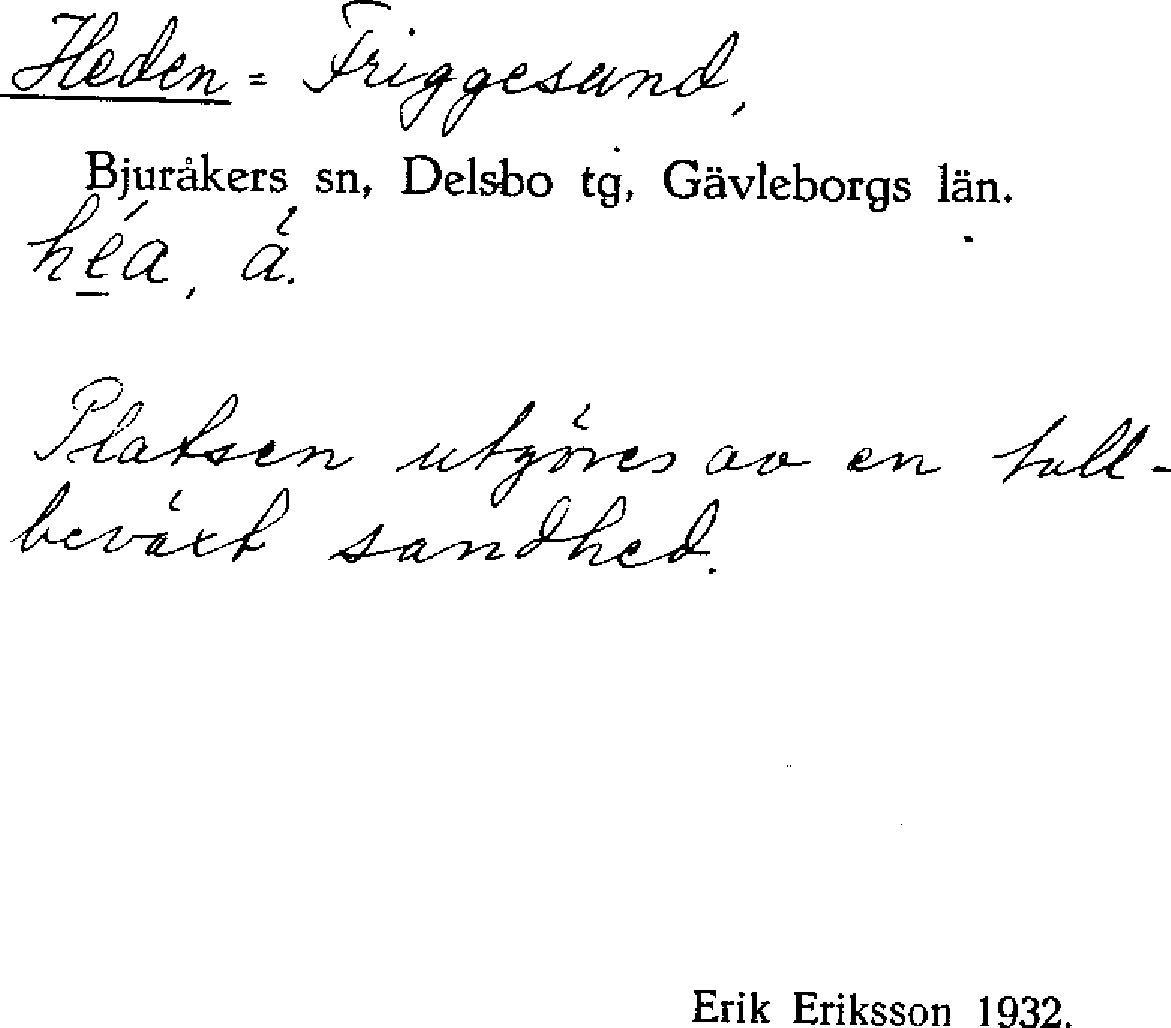 Heden = Friggesund,
Bjuråkers sn, Delsbo tg, Gävleborgs län.
héa, å.
Platsen utgöres av en tall-
beväxt sandhed.
Erik Eriksson 1932.